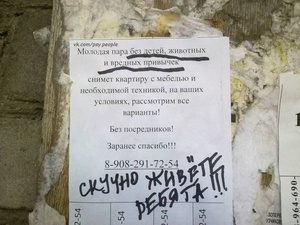 vk.com/pay.people
Молодая пара без детей, животных
и вредных привычек
снимет квартиру с мебелью и
необходимой техникой, на ваших
условиях, рассмотрим все
варианты!
Без посредников!
Заранее спасибо!!!
8-908-291-72-54
СКУЧНО ЖИВЁТЕ
РЕБЯТА!!!